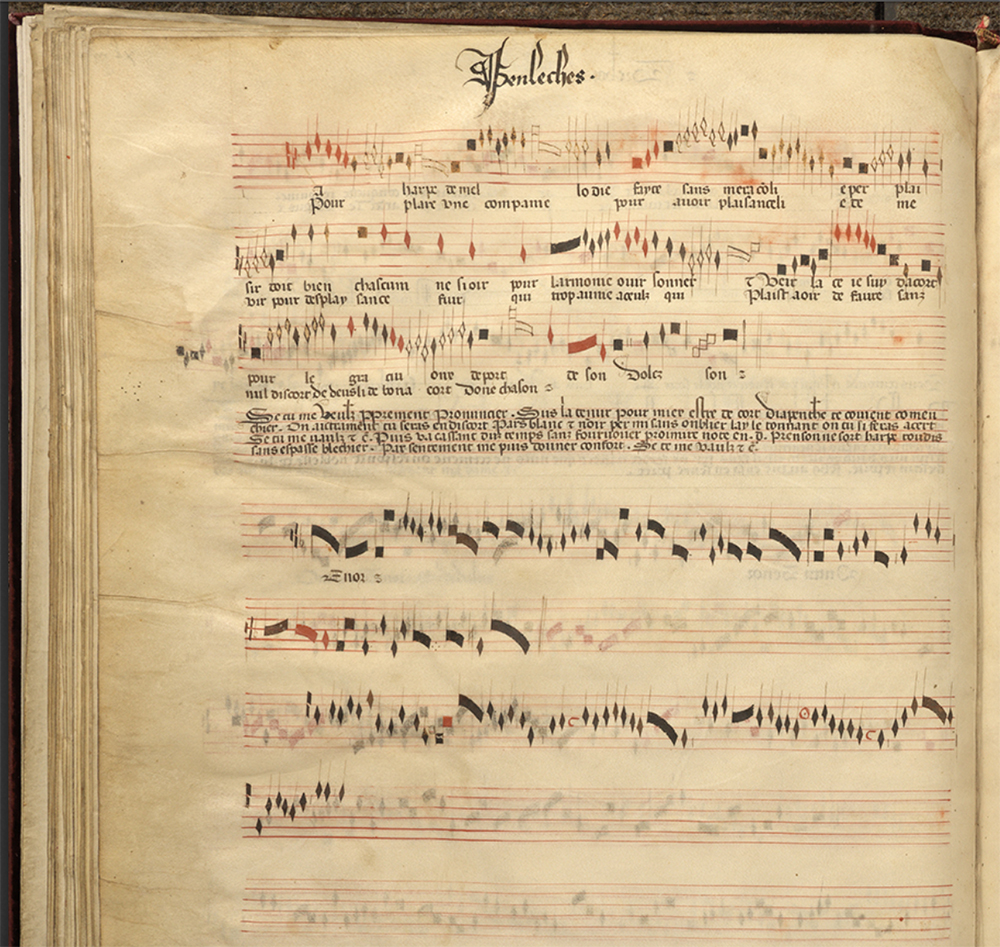 Senleches.
a harpe de mel lo die fayte sans meracoli e per plai
Pour plare vne companie pour auoir plaisanceli e de me
sir doit bien chascum ne si oir pour larmonie ouir sonner
vir pour desplay sance fuir qui trop anuie a ceulz qui
τ veir la ce ie suy dacort
Plaist aoir de faire sanz
pour le gra cui oux deport de son dolcz son
nul discort de dens li de bona cort done chason
Se tu me veulz pprement pronuncier. Sus la tenur pour mier estre de cort diapenthe te couient comen
chier. Ou autrament tu seras en discort Pars blanc τ noir per mi sans oublier lay le tonnant ou tu li feras a cert
Se tu me vaulz τ c̄. Puis va cassant duz temps sanz fourvoier promire note en . d . prenson ne sort harpe toudis
sans espasse blechier. Par sentement me puis douner confort. Se tu me vaulz τ c̄.
Tenor